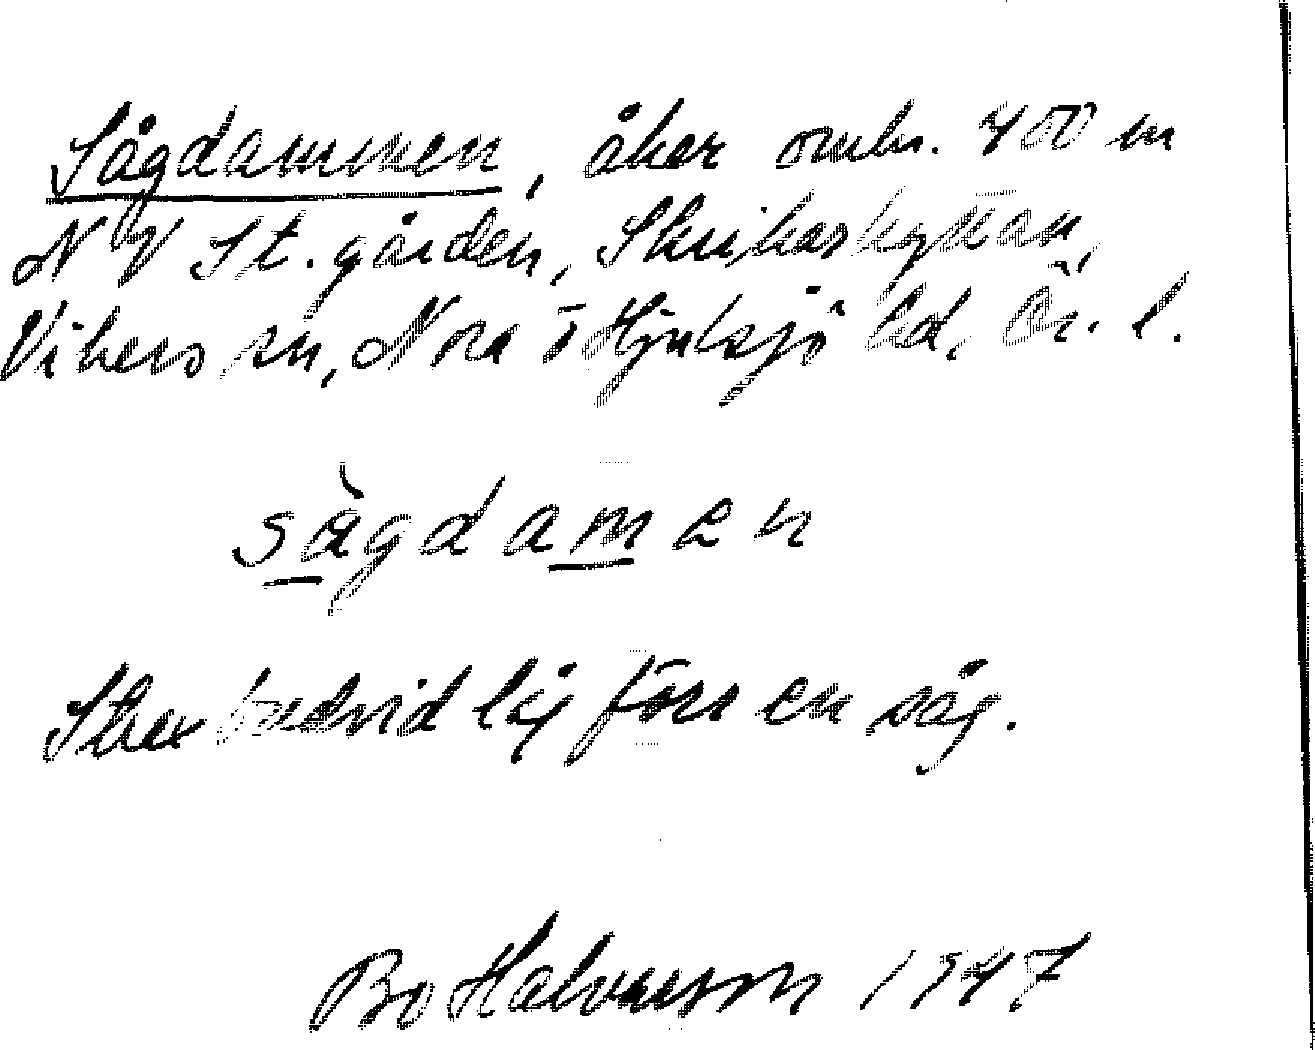 Sågdammen, åker omkr. 400 m
NV St. gården, Skrikarhyttan,
Vikers sn, Nora o Hjulsjö bd, Ör. l.
sàgdamen
Strax bredvid låg förr en såg.
Bo Halvarson 1947